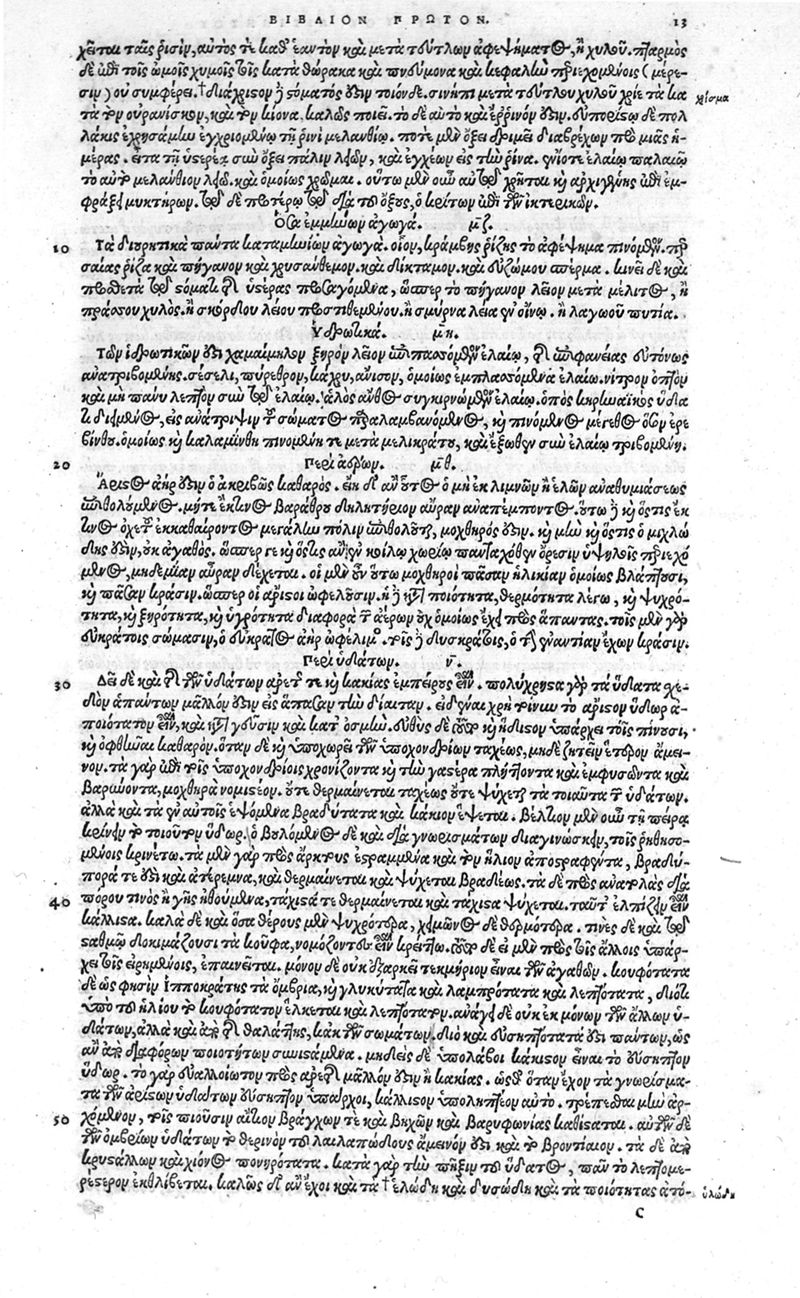 ΒΙΒΛΙΟΝ ΠΡΩΤΟΝ. 13
χεῖται ταῖς ῥισὶν, αὐτός τε καθ' ἑαυτὸν καὶ μετὰ τεύτλων ἀφεψήματος, ἢ χυλοῦ. πταρμὸς
δὲ ἐπὶ τοῖς ὠμοῖς χυμοῖς τοῖς κατὰ θώρακα καὶ πνεύμονα καὶ κεφαλὴν περιεχομένοις (μέρε-
σιν) οὐ συμφέρει. †διάχριστον δὲ στόματός ἐστιν τοιόνδε. σίνηπι μετὰ τεύτλου χυλοῦ χρῖε τὰ κα
χρίσμα
τὰ τὸν οὐρανίσκον, καὶ τὸν κίονα. καλῶς ποιεῖ. τὸ δὲ αὐτὸ καὶ ἔρρινόν ἐστιν. εὐπορίστῳ δὲ πολ
λάκις ἐχρησάμην ἐγχριομένῳ τῇ ῥινὶ μελανθίῳ. ποτὲ μὲν ὄξει δριμεῖ διαβρέχων πρὸ μιᾶς ἡ-
μέρας. εἶτα τῇ ὑστέρᾳ σὺν ὄξει πάλιν λειῶν, καὶ ἐγχέων εἰς τὴν ῥῖνα. ἐνίοτε ἐλαίῳ παλαιῷ
τὸ αὐτὸ μελάνθιον λειῶ. καὶ ὁμοίως χρῶμαι. οὕτω μὲν οὖν αὐτῷ χρῆται καὶ ἀρχιγένης ἐπὶ ἐμ-
φράξει μυκτήρων. τῷ δὲ προτέρῳ τῷ διὰ τοῦ ὄξους, ὁ κρίτων ἐπὶ τῶν ἰκτερικῶν.
Ὅσα ἐμμήνων ἀγωγά. μζ.
10 Τὰ διουρητικὰ πάντα καταμηνίων ἀγωγά. οἷον, κράμβης ῥίζης τὸ ἀφέψημα πινόμενον. περ
σαίας ῥίζα καὶ πήγανον καὶ χρυσάνθεμον. καὶ δίκταμον. καὶ εὐζώμου σπέρμα. κινεῖ δὲ καὶ
πρόσθετα τῷ στόματι τῆς ὑστέρας προσαγόμενα, ὥσπερ τὸ πήγανον λεῖον μετὰ μέλιτος, ἢ
πράσου χυλός. ἢ σκόρδιον λεῖον προστιθεμένου. ἢ σμύρνα λεία ἐν οἴνῳ. ἢ λαγωοῦ πυτία.
Ἱδρωτικά. μη.
Τῶν ἱδρωτικῶν ἐστι χαμαίμηλον ξηρὸν λεῖον ἐπιπασσόμενον ἐλαίῳ, τῆς ἐπιφανείας εὐτόνως
ἀνατριβομένης. σέσελι, πύρεθρον, κάχρυ, ἄνισον, ὁμοίως ἐμπλασσόμενα ἐλαίῳ. νίτρον ὀπτὸν
καὶ μὴ πάνυ λεπτὸν σὺν τῷ ἐλαίῳ. ἁλὸς ἄνθος συγκιρνώμενον ἐλαίῳ. ὀπὸς κυρηναϊκὸς ὕδα
τι διειμένος, εἰς ἀνάτριψιν τοῦ σώματος παραλαμβανόμενος, καὶ πινόμενος μέγεθος ὅσον ἐρε
βίνθου. ὁμοίως καὶ καλαμίνθη πινομένη τε μετὰ μελικράτου, καὶ ἔξωθεν σὺν ἐλαίῳ τριβομένη.
20 Περὶ ἀέρων. μθ.
Ἄριστος ἀήρ ἐστιν ὁ ἀκριβῶς καθαρός. εἴη δ' ἂν οὗτος ὁ μὴ ἐκ λιμνῶν ἢ ἑλῶν ἀναθυμιάσεως
ἐπιθολούμενος. μήτε ἔκ τινος βαράθρου δηλητήριον αὖραν ἀναπέμποντος. οὕτω δὲ καὶ ὅστις ἔκ
τινος ὀχετοῦ ἐκκαθαίροντος μεγάλην πόλιν ἐπιθολοῦται, μοχθηρός ἐστιν. καὶ μὴν καὶ ὅστις ὁμιχλώ
δης ἐστιν, οὐκ ἀγαθός. ὥσπερ γε καὶ ὅστις ἂν ἐν κοίλῳ χωρίῳ πανταχόθεν ὄρεσιν ὑψηλοῖς περιεχό
μενος, μηδεμίαν αὖραν δέχεται. οἱ μὲν οὖν οὕτω μοχθηροὶ πᾶσαν ἡλικίαν ὁμοίως βλάπτουσι,
καὶ πᾶσαν κρᾶσιν. ὥσπερ οἱ ἄριστοι ὠφελοῦσιν. ἡ δὲ κατὰ ποιότητα, θερμότητα λέγω, καὶ ψυχρό-
τητα, καὶ ξηρότητα, καὶ ὑγρότητα διαφορὰ τῶν ἀέρων οὐχ ὁμοίως ἔχει πρὸς ἅπαντας. τοῖς μὲν γὰρ
εὐκράτοις σώμασιν, ὁ εὔκρατος ἀὴρ ὠφέλιμος. τοῖς δὲ δυσκράτοις, ὁ τὴν ἐναντίαν ἔχων κρᾶσιν.
Περὶ ὑδάτων. ν.
30 Δεῖ δὲ καὶ τῆς τῶν ὑδάτων ἀρετῆς τε καὶ κακίας ἔμπειρον εἶναι. πολύχρηστα γὰρ τὰ ὕδατα σχε-
δὸν ἁπάντων μᾶλλόν ἐστιν εἰς ἅπασαν τὴν δίαιταν. εἰδέναι χρὴ τοίνυν τὸ ἄριστον ὕδωρ ἄ-
ποιότατον εἶναι, καὶ κατὰ γεῦσιν καὶ κατ' ὀσμήν. εὐθὺς δὲ τοῦτο καὶ ἥδιστον ὑπάρχει τοῖς πίνουσι,
καὶ ὀφθῆναι καθαρόν. ὅταν δὲ καὶ ὑποχωρεῖ τῶν ὑποχονδρίων ταχέως, μηδὲ ζητεῖν ἕτερον ἄμει-
νον. τὰ γὰρ ἐπὶ τοῖς ὑποχονδρίοις χρονίζοντα καὶ τὴν γαστέρα πλήττοντα καὶ ἐμφυσῶντα καὶ
βαρύνοντα, μοχθηρὰ νομιστέον. οὔτε θερμαίνεται ταχέως οὔτε ψύχεται τὰ τοιαῦτα τῶν ὑδάτων.
ἀλλὰ καὶ τὰ ἐν αὐτοῖς ἑψόμενα βραδύτατα καὶ κάκιον ἕψεται. βέλτιον μὲν οὖν τῇ πείρᾳ
κρίνειν τὸ τοιοῦτον ὕδωρ. ὁ βουλόμενος δὲ καὶ διὰ γνωρισμάτων διαγινώσκειν, τοῖς ῥηθησο-
μένοις κρινέτω. τὰ μὲν γὰρ πρὸς ἄρκτους ἐστραμμένα καὶ τὸν ἥλιον ἀποστραφέντα, βραδύ-
πορά τέ ἐστι καὶ ἀτέραμνα, καὶ θερμαίνεται καὶ ψύχεται βραδέως. τὰ δὲ πρὸς ἀνατολὰς διὰ
40 πόρου τινὸς ἢ γῆς ἠθούμενα, τάχιστά τε θερμαίνεται καὶ τάχιστα ψύχεται. ταῦτ' ἐλπίζειν εἶναι
κάλλιστα. καλὰ δὲ καὶ ὅσα θέρους μὲν ψυχρότερα, χειμῶνος δὲ θερμότερα. τινὲς δὲ καὶ τῷ
σταθμῷ δοκιμάζουσι τὰ κοῦφα, νομίζοντες εἶναι κρείττω. τοῦτο δὲ εἰ μὲν πρὸς τοῖς ἄλλοις ὑπάρ-
χει τοῖς εἰρημένοις, ἐπαινεῖται. μόνον δὲ οὐκ ἐξαρκεῖ τεκμήριον εἶναι τῶν ἀγαθῶν. κουφότατα
δὲ ὥς φησιν Ἱπποκράτης τὰ ὄμβρια, καὶ γλυκύτατα καὶ λαμπρότατα καὶ λεπτότατα, διότι
ὑπὸ τοῦ ἡλίου τὸ κουφότατον ἕλκεται καὶ λεπτότατον. ἀνάγει δὲ οὐκ ἐκ μόνων τῶν ἄλλων ὑ-
δάτων, ἀλλὰ καὶ ἀπὸ τῆς θαλάττης, κἀκ τῶν σωμάτων. διὸ καὶ εὐσηπτότατά ἐστι πάντων, ὡς
ἂν ἀπὸ διαφόρων ποιοτήτων συνιστάμενα. μηδεὶς δὲ ὑπολάβοι κάκιστον εἶναι τὸ εὔσηπτον
ὕδωρ. τὸ γὰρ εὐαλλοίωτον πρὸς ἀρετῆς μᾶλλόν ἐστιν ἢ κακίας. ὥσθ' ὅταν ἔχον τὰ γνωρίσμα-
τα τῶν ἀρίστων ὑδάτων εὔσηπτον ὑπάρχοι, κάλλιστον ὑποληπτέον αὐτό. τρέπεσθαι μὲν ἀρ-
50 χόμενον, τοῖς πιοῦσιν αἴτιον βράγχων τε καὶ βηχῶν καὶ βαρυφωνίας καθίσταται. αὐτῶν δὲ
τῶν ὀμβρίων ὑδάτων τὸ θερινὸν τοῦ λαιλαπώδους ἄμεινόν ἐστι καὶ τὸ βρονταῖον. τὰ δὲ ἀπὸ
κρυστάλλων καὶ χιόνος πονηρότατα. κατὰ γὰρ τὴν πῆξιν τοῦ ὕδατος, πᾶν τὸ λεπτομε-
ρέστερον ἐκθλίβεται. καλῶς δ' ἂν ἔχοι καὶ τὰ †ἑλώδη καὶ δυσώδη καὶ τὰ ποιότητας ἀτό-
ὑλώδη
C